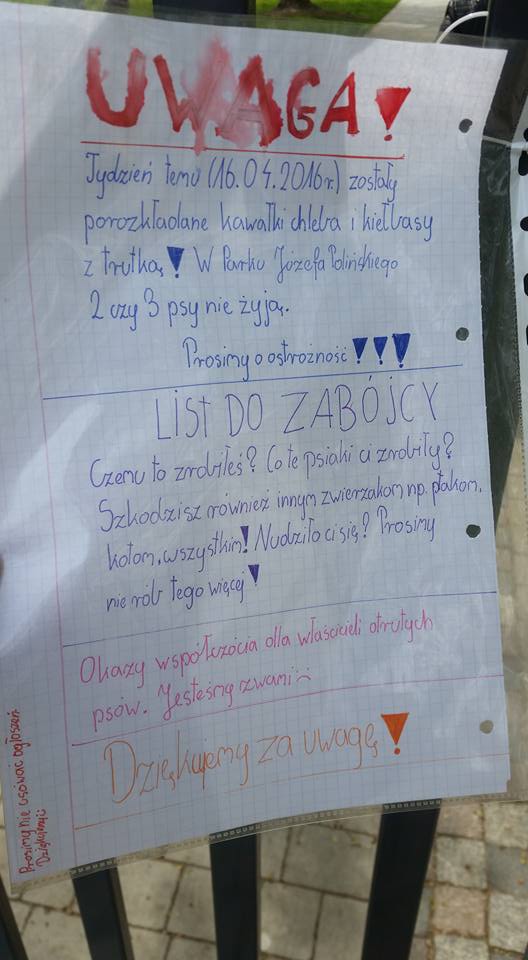 UWAGA!
Tydzień temu (16.04.2016r.) zostały
porozkładane kawałki chleba i kiełbasy
z trutką! W Parku Józefa Polińskiego
2 czy 3 psy nie żyją.
Prosimy o ostrożność!!!
LIST DO ZABÓJCY
Czemu to zrobiłeś? Co te psiaki ci zrobiły?
Szkodzisz również innym zwierzakom np. ptakom,
kotom, wszystkim! Nudziło ci się? Prosimy
nie rób tego więcej!
Okazy współczócia dla właścicieli otrutych
psów. Jesteśmy z wami :(
Dziękujemy za uwagę!
Prosimy nie usówać ogłoszeń
Dziękujemy: